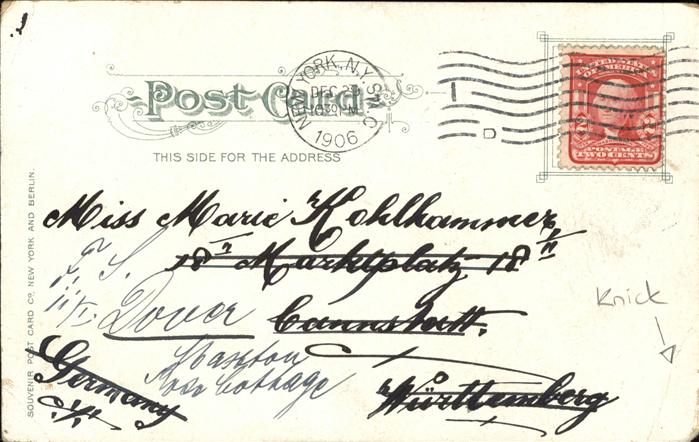 POST CARD
NEW YORK, N.Y.
DEC 23
1906
D
UNITED STATES
OF AMERICA
POSTAGE
TWO CENTS
THIS SIDE FOR THE ADDRESS
SOUVENIR POST CARD CO. NEW YORK AND BERLIN.
Miss Marie Kohlhammer
18 II Marktplatz 18 II
Cannstatt.
Dover
Cottage
Germany
Württemberg
Knick